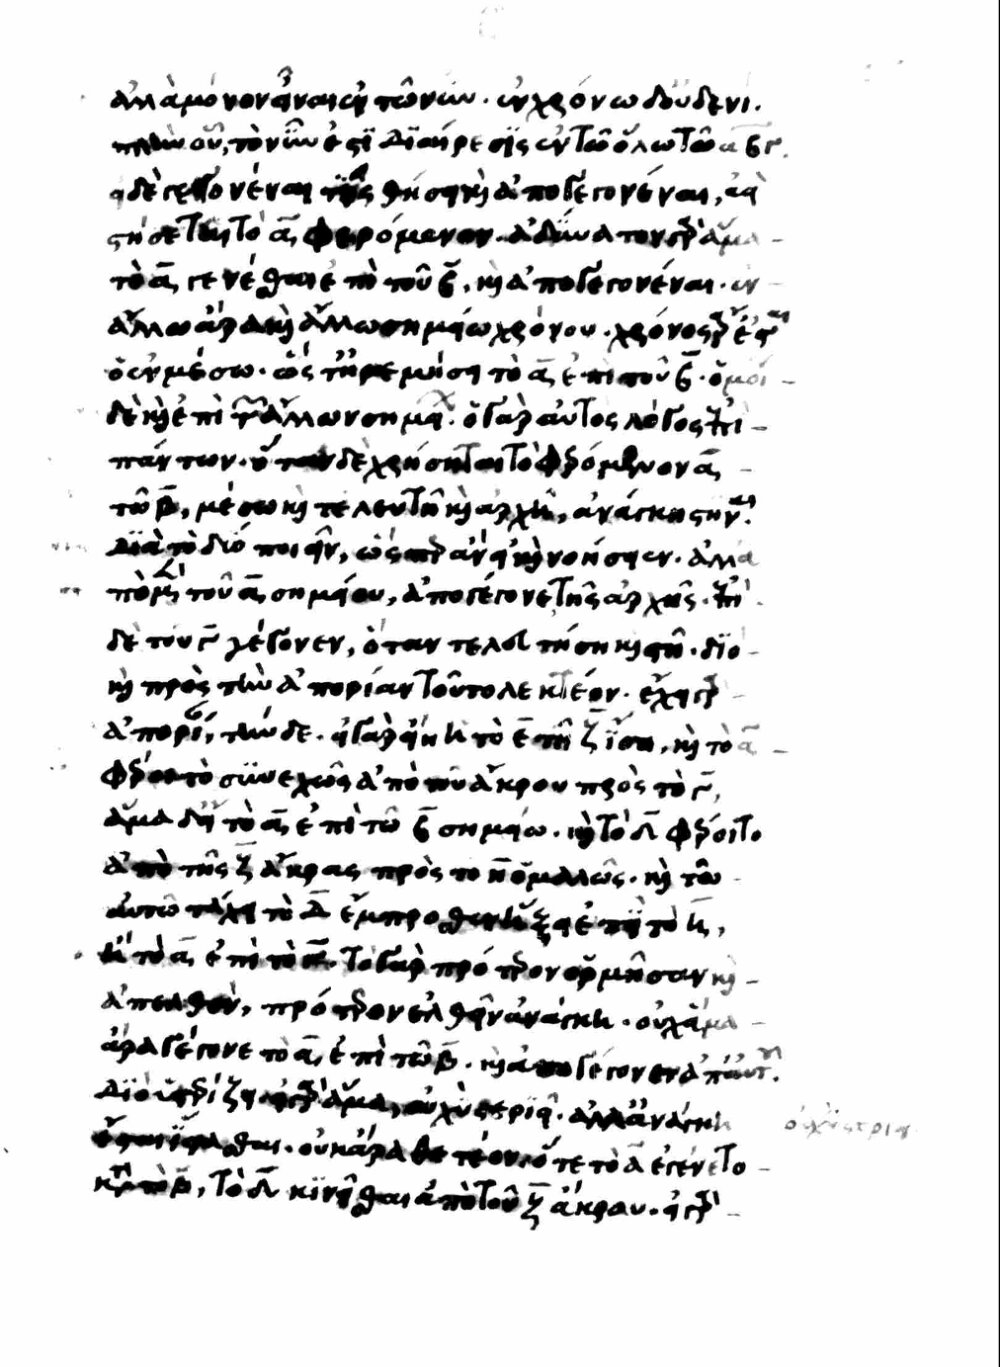 ἀλλὰ μόνον εἶναι ἐν τῶ νῦν. ἐν χρόνω δ' οὐδενὶ.
πλὴν οὗ, τὸ νῦν ἐστὶ διαίρεσις ἐν τῶ ὅλω τῶ α̅β̅γ̅.
εἰ δὲ γεγονέναι τίς θήσει κὶ ἀπογεγονέναι, ἀεὶ
στήσεται τὸ α̅, φερόμενον. ἀδύνατον γὰρ ἅμα
τὸ α̅, γενέσθαι ἐπὶ τοῦ β̅, κὶ ἀπογεγονέναι. ἐν
ἄλλω ἄρα κὶ ἄλλω σημείω χρόνου. χρόνος ἄρ' ἔσται
ὁ ἐν μέσω. ὥστ' ἠρεμήσει τὸ α̅, ἐπὶ τοῦ β̅. ὁμοί
δὲ κὶ ἐπὶ τῶν ἄλλων σημεί. ὁ γὰρ αὐτὸς λόγος ἐπὶ
πάντων. ὅταν δὲ χρήσηται τὸ φερόμενον α̅,
τῶ β̅, μέσω κὶ τελευτῆ κὶ ἀρχῆ, ἀνάγκη στῆναι.
διὰ τὸ δύο ποιεῖν, ὥσπερ ἂν εἰ κὶ νοήσειεν. ἀλλὰ
πὸ μὲν τοῦ α̅, σημείου, ἀπογέγονε τῆς ἀρχῆς. ἐπὶ
δὲ τοῦ γ̅ γέγονεν, ὅταν τελευτήση κὶ στῆ. διὸ
κὶ πρὸς τὴν ἀπορίαν τοῦτο λεκτέον. ἔχει γὰρ
ἀπορί, τήνδε. εἰ γὰρ εἴη ἡ τὸ ε̅ τῆ ζ̅ ἴση, κὶ τὸ α̅
φέροιτο συνεχῶς ἀπὸ τοῦ ἄκρου πρὸς τὸ γ̅,
ἅμα δ' εἴη τὸ α̅, ἐπὶ τῶ β̅ σημείω. κὶ τὸ δ̅ φέροιτο
ἀπὸ τῆς ζ̅ ἄκρας πρὸς τὸ η̅ ὁμαλῶς. κὶ τῶ
αὐτῶ τάχει τὸ δ̅ ἔμπροσθεν ἥξει ἐπὶ τὸ η̅,
ἢ τὸ α̅, ἐπὶ τὸ γ̅. τὸ γὰρ πρότερον ὁρμῆσαν κὶ
ἀπελθὸν, πρότερον ἐλθεῖν ἀνάγκη. οὐχ ἅμα
ἄρα γέγονε τὸ α̅, ἐπὶ τῶ β̅. κὶ ἀπογέγονεν ἀπ' αὐτ.
διὸ ὑστερίζει. εἰ γὰρ ἅμα, οὐχ ὑστεριεῖ. ἀλλ' ἀνάγκη
ἔσται ἵστασθαι. οὐκ ἄρα θετέον. ὅτε τὸ α̅ ἐγένετο
κατὰ τὸ β̅, τὸ δ̅ κινεῖσθαι ἀπὸ τοῦ ζ̅ ἄκρου. εἰ γὰρ
οὐχ ὑστεριεῖ